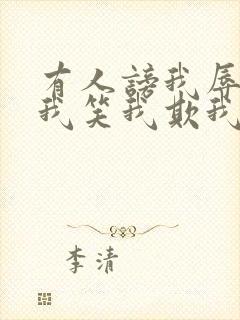 有人謗我辱
我笑我欺我
李清